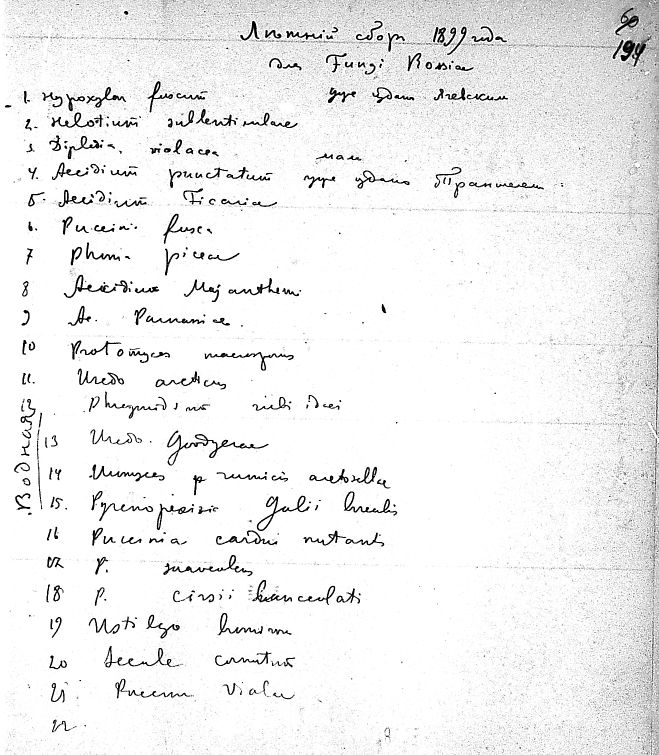 60
194
Лѣтній сборъ 1899 года
для Fungi Rossiae
1. Hypoxylon fuscum уже изданъ Ячевскимъ
2. Helotium sublenticulare
3. Diplodia violacea
4. Aecidium punctatum уже издано Траншелемъ
5. Aecidium Ficariae
6. Puccinia fusca
7 Phoma piceae
8 Aecidium Majanthemi
9 Ae. Parnassiae.
10 Protomyces macrosporus
11. Uredo arcticus
12 Phragmidium rubi idaei
Водная
13 Uredo Goodyerae
14 Uromyces rumicis acetosellae
15. Pyrenopeziza Galii borealis
16 Puccinia cardui nutantis
17 P. suaveolens
18 P. cirsii lanceolati
19 Ustilago
20 Secale cornutum
21. Puccinia Violae
22.